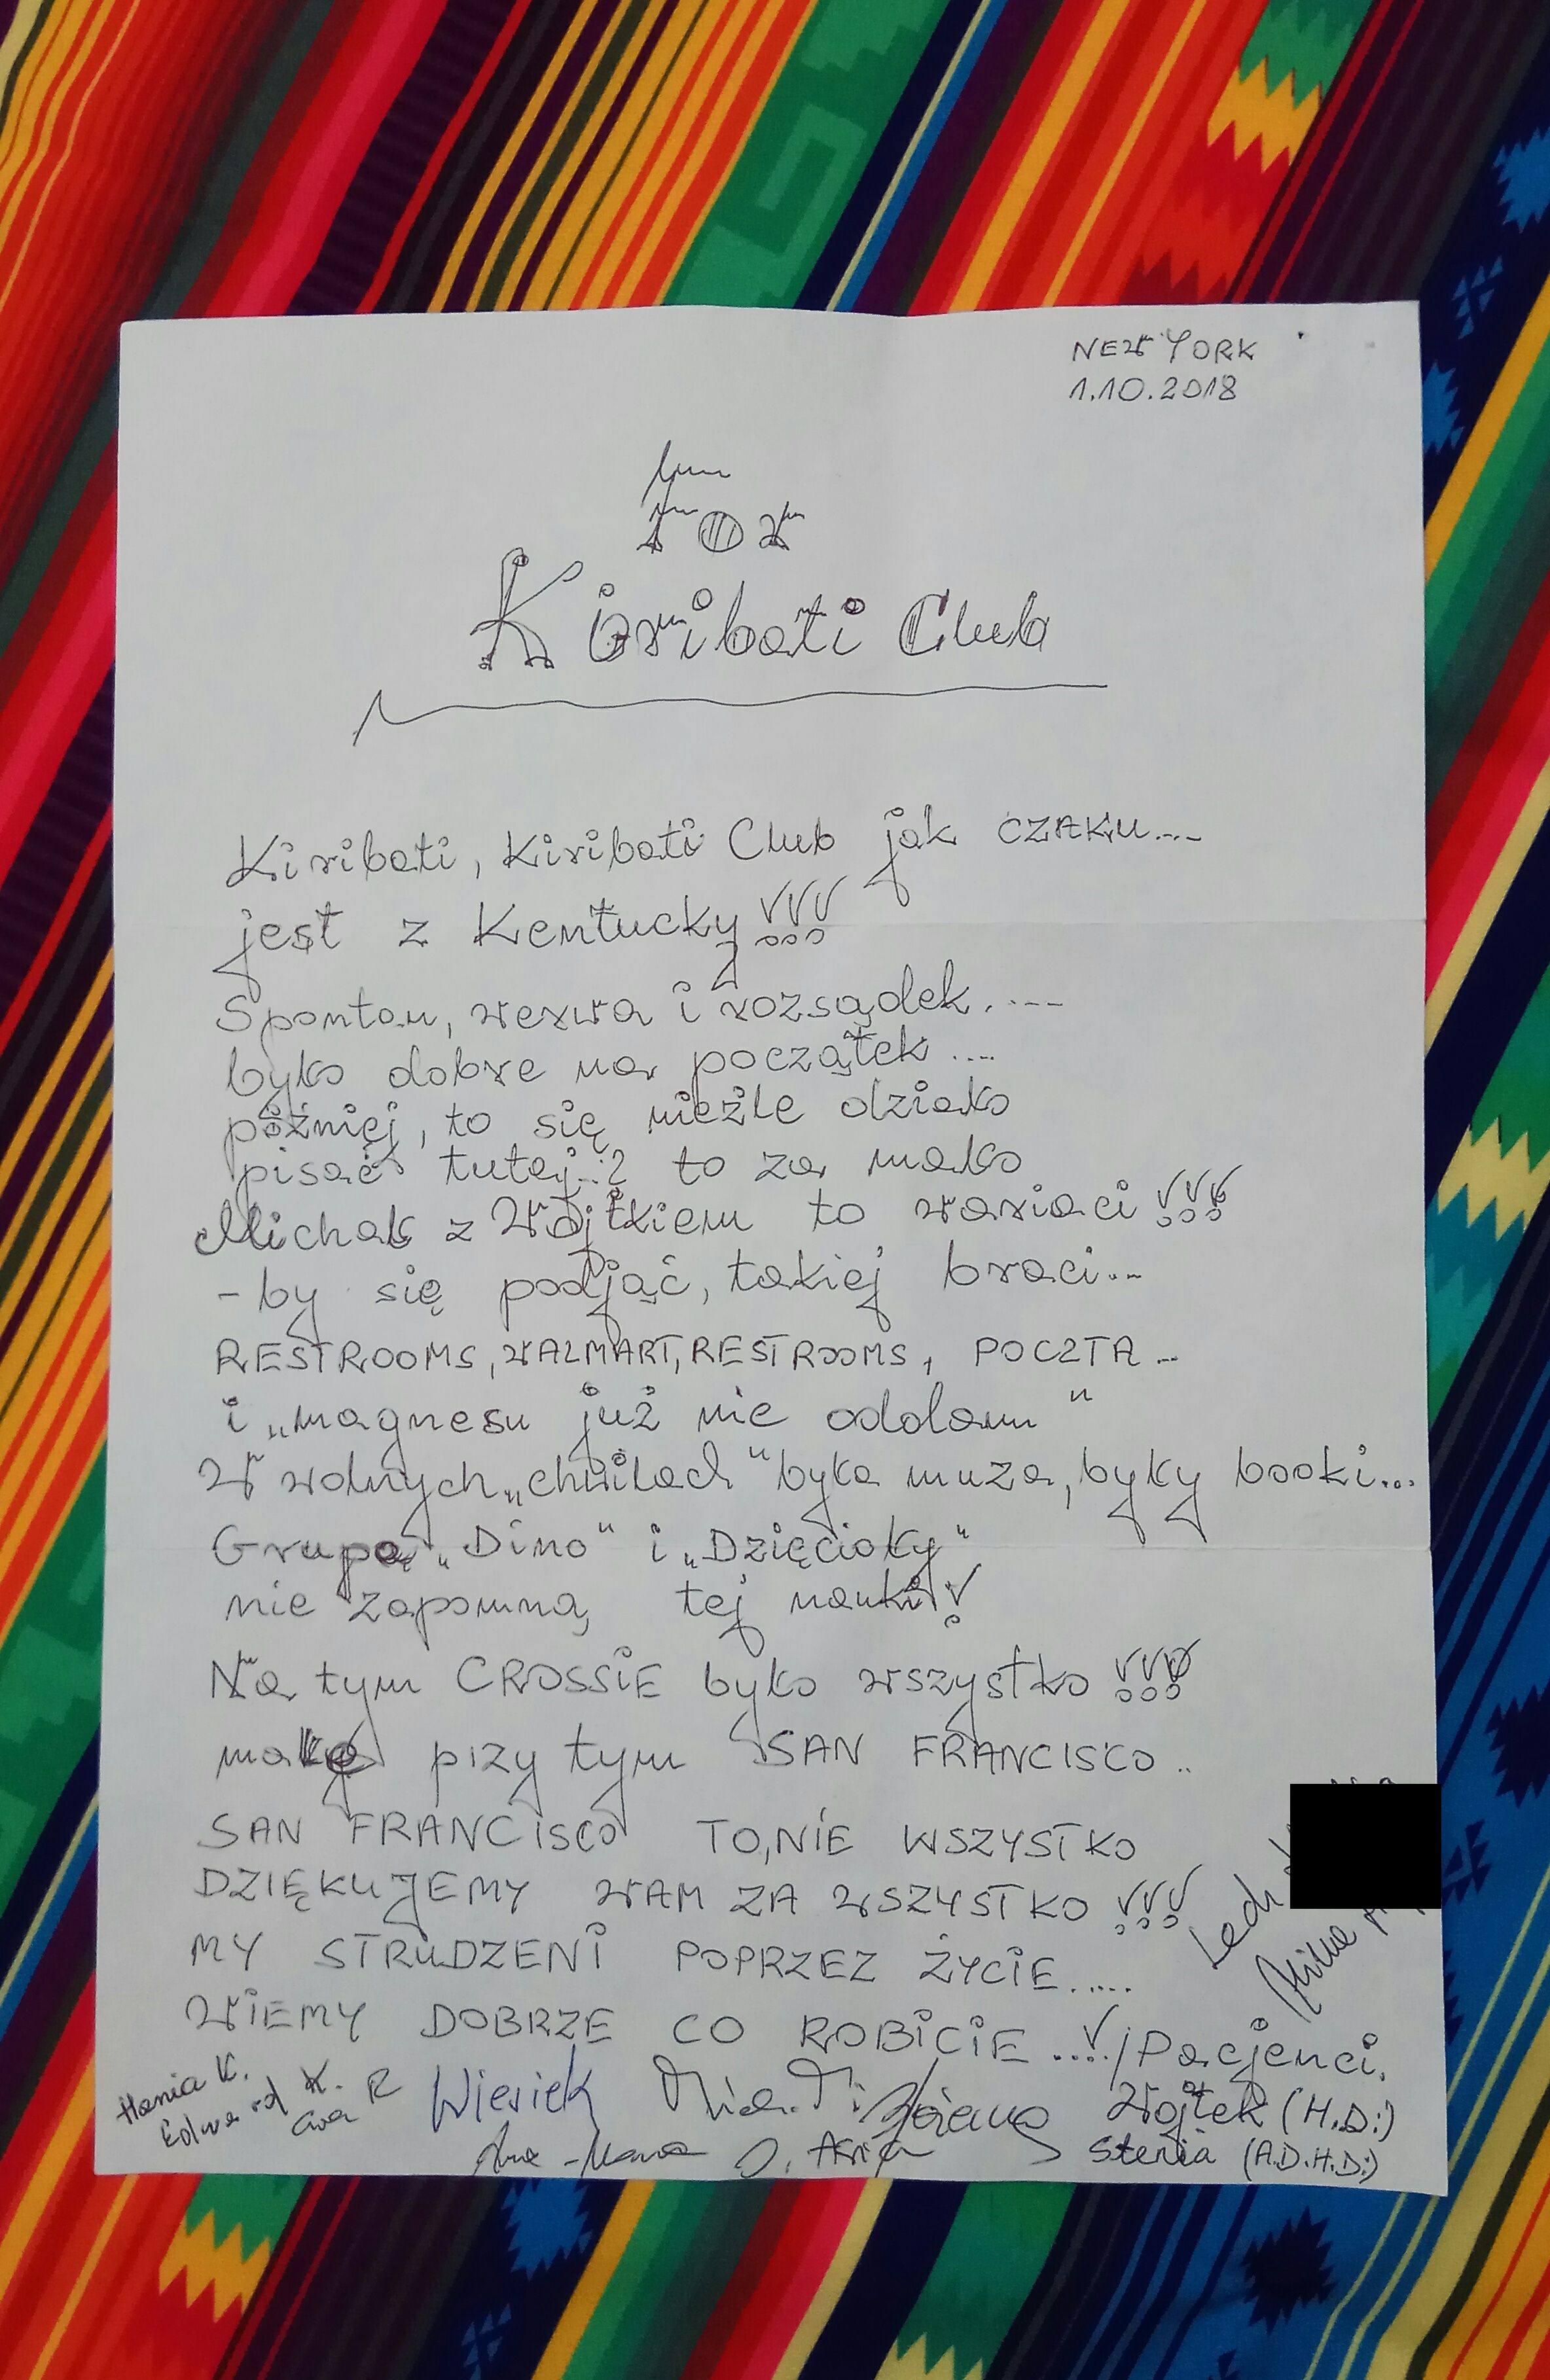 NEW YORK
1.10.2018
For
Kiribati Club
Kiribati, Kiribati Club jak czaku....
jest z Kentucky!!!
Spontan, werwa i rozsądek....
było dobre na początek....
później, to się nieźle działo
pisać tutaj..? to za mało
Michał z Wojtkiem to wariaci!!!
- by się podjąć, takiej braci...
RESTROOMS, WALMART, RESTROOMS, POCZTA...
i „magnesu już nie oddam"
W wolnych „chwilach" była muza, były booki...
Grupa „Dino" i „Dzięcioły"
nie zapomną tej nauki!
Na tym CROSSIE było wszystko!!!
przy tym SAN FRANCISCO..
SAN FRANCISCO TO, NIE WSZYSTKO
DZIĘKUJEMY WAM ZA WSZYSTKO!!!
MY STRUDZENI POPRZEZ ŻYCIE.....
WIEMY DOBRZE CO ROBICIE....!/Pacjenci.
Lech
Hania K.
Edward K.
Ewa R
Wiesiek
Wojtek (H.D:)
Stenia (A.D.H.D:)